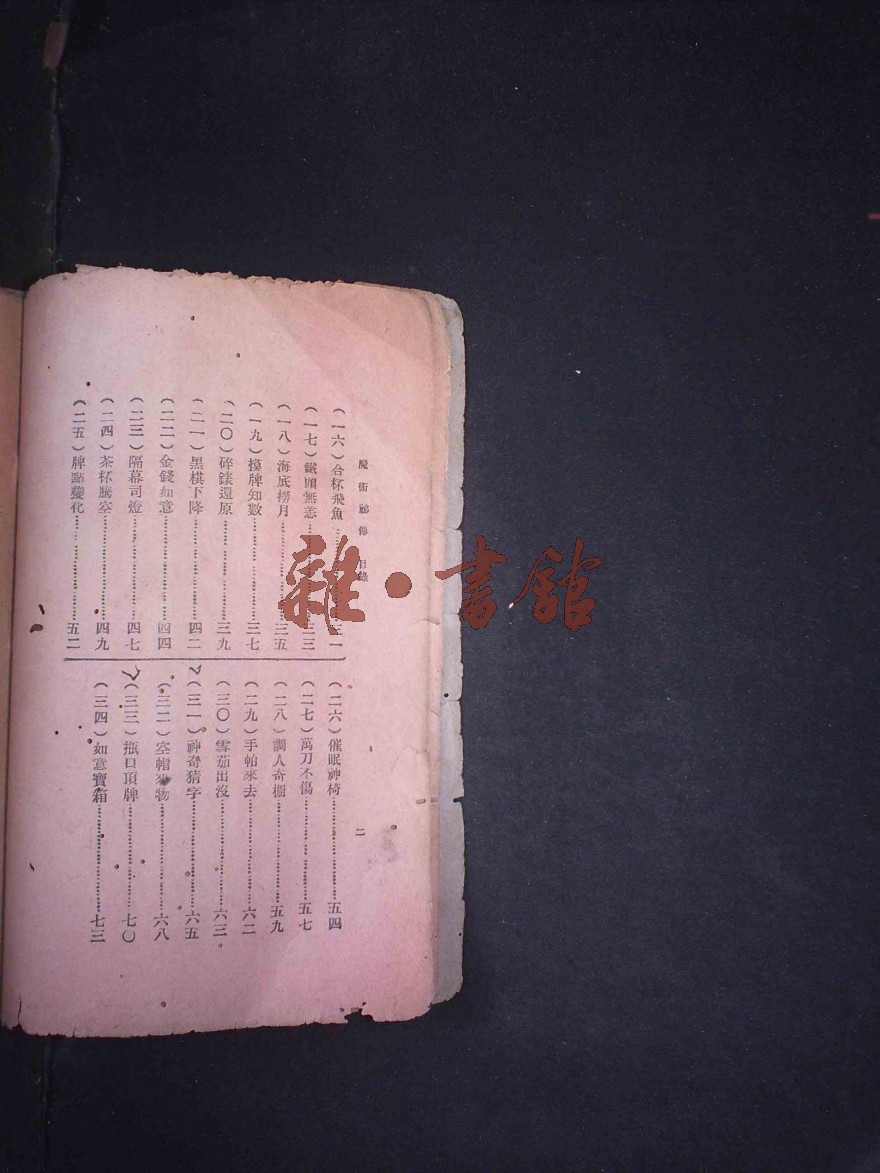 魔術祕傳 目錄
(一六)合杯飛魚……三一
(一七)鐵頭無恙……三三
(一八)海底撈月……三五
(一九)摸牌知數……三七
(二〇)碎錶還原……三九
(二一)黑棋下降……四二
(二二)金錢如意……四四
(二三)隔幕司燈……四七
(二四)茶杯騰空……四九
(二五)牌點變化……五二
(二六)催眠神椅……五四
(二七)萬刀不傷……五七
(二八)調人奇櫃……五九
(二九)手帕來去……六二
(三〇)雪茄出沒……六三
(三一)神奇猜字……六五
(三二)空帽來物……六八
(三三)瓶口頂牌……七〇
(三四)如意寶箱……七三
二
雜·書館